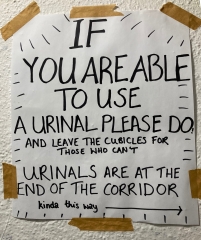 IF
YOU ARE ABLE
TO USE
A URINAL PLEASE DO
AND LEAVE THE CUBICLES FOR
THOSE WHO CAN'T
URINALS ARE AT THE
END OF THE CORRIDOR
kinda this way